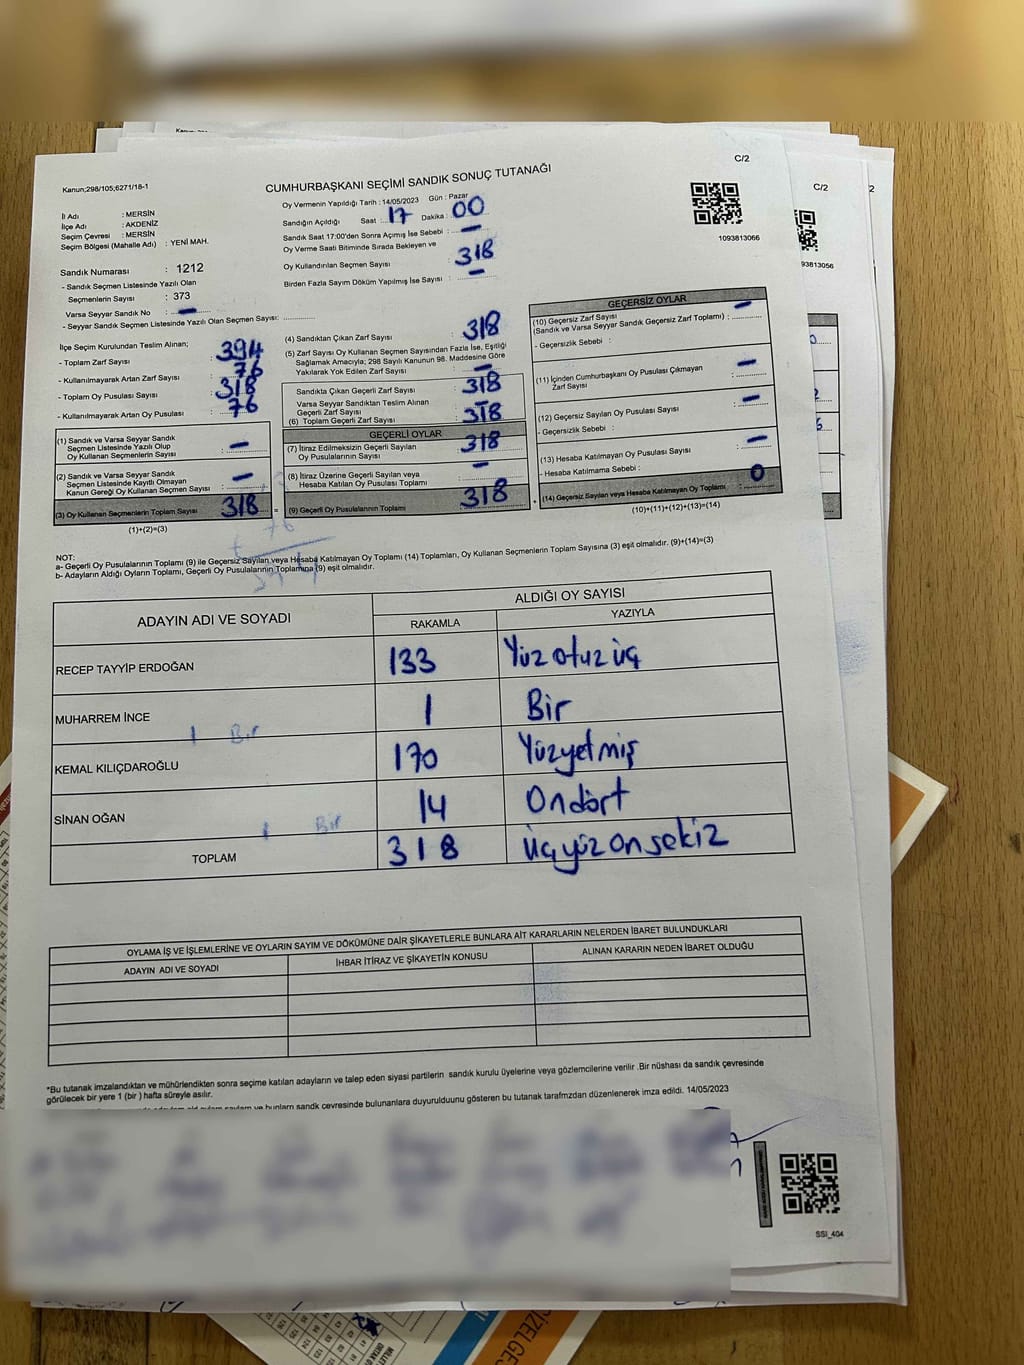 C/2
C/2
2
Kanun;298/105;6271/18-1
CUMHURBAŞKANI SEÇİMİ SANDIK SONUÇ TUTANAĞI
İl Adı : MERSİN
İlçe Adı : AKDENİZ
Seçim Çevresi : MERSİN
Seçim Bölgesi (Mahalle Adı) : YENİ MAH.
Oy Vermenin Yapıldığı Tarih : 14/05/2023 Gün : Pazar
Sandığın Açıldığı Saat : 17 Dakika : 00
Sandık Saat 17:00'den Sonra Açılmış İse Sebebi : —
Oy Verme Saati Bitiminde Sırada Bekleyen ve
Oy Kullandırılan Seçmen Sayısı 318
Birden Fazla Sayım Döküm Yapılmış İse Sayısı : —
1093813066
93813056
Sandık Numarası : 1212
- Sandık Seçmen Listesinde Yazılı Olan
Seçmenlerin Sayısı : 373
Varsa Seyyar Sandık No : —
- Seyyar Sandık Seçmen Listesinde Yazılı Olan Seçmen Sayısı:
İlçe Seçim Kurulundan Teslim Alınan;
- Toplam Zarf Sayısı : 394
- Kullanılmayarak Artan Zarf Sayısı : 76
- Toplam Oy Pusulası Sayısı : 318
- Kullanılmayarak Artan Oy Pusulası : 76
(1) Sandık ve Varsa Seyyar Sandık
Seçmen Listesinde Yazılı Olup
Oy Kullanan Seçmenlerin Sayısı : —
(2) Sandık ve Varsa Seyyar Sandık
Seçmen Listesinde Kayıtlı Olmayan
Kanun Gereği Oy Kullanan Seçmen Sayısı : —
(3) Oy Kullanan Seçmenlerin Toplam Sayısı : 318
(1)+(2)=(3)
(4) Sandıktan Çıkan Zarf Sayısı : 318
(5) Zarf Sayısı Oy Kullanan Seçmen Sayısından Fazla İse, Eşitliği
Sağlamak Amacıyla; 298 Sayılı Kanunun 98. Maddesine Göre
Yakılarak Yok Edilen Zarf Sayısı : —
Sandıkta Çıkan Geçerli Zarf Sayısı : 318
Varsa Seyyar Sandıktan Teslim Alınan
Geçerli Zarf Sayısı : —
(6) Toplam Geçerli Zarf Sayısı : 318
GEÇERLİ OYLAR
(7) İtiraz Edilmeksizin Geçerli Sayılan
Oy Pusulasının Sayısı : 318
(8) İtiraz Üzerine Geçerli Sayılan veya
Hesaba Katılan Oy Pusulası Toplamı : —
(9) Geçerli Oy Pusulalarının Toplamı : 318
GEÇERSİZ OYLAR
(10) Geçersiz Zarf Sayısı
(Sandık ve Varsa Seyyar Sandık Geçersiz Zarf Toplamı) : —
- Geçersizlik Sebebi :
(11) İçinden Cumhurbaşkanı Oy Pusulası Çıkmayan
Zarf Sayısı : —
(12) Geçersiz Sayılan Oy Pusulası Sayısı : —
- Geçersizlik Sebebi :
(13) Hesaba Katılmayan Oy Pusulası Sayısı : —
- Hesaba Katılmama Sebebi :
(14) Geçersiz Sayılan veya Hesaba Katılmayan Oy Toplamı : 0
(10)+(11)+(12)+(13)=(14)
NOT:
a- Geçerli Oy Pusulalarının Toplamı (9) ile Geçersiz Sayılan veya Hesaba Katılmayan Oy Toplamı (14) Toplamları, Oy Kullanan Seçmenlerin Toplam Sayısına (3) eşit olmalıdır. (9)+(14)=(3)
b- Adayların Aldığı Oyların Toplamı, Geçerli Oy Pusulalarının Toplamına (9) eşit olmalıdır.
ADAYIN ADI VE SOYADI
ALDIĞI OY SAYISI
RAKAMLA YAZIYLA
RECEP TAYYİP ERDOĞAN 133 Yüz otuz üç
MUHARREM İNCE 1 Bir
1 Bir
KEMAL KILIÇDAROĞLU 170 Yüzyetmiş
SİNAN OĞAN 14 Ondört
1 Bir
TOPLAM 318 Üçyüz onsekiz
OYLAMA İŞ VE İŞLEMLERİNE VE OYLARIN SAYIM VE DÖKÜMÜNE DAİR ŞİKAYETLERLE BUNLARA AİT KARARLARIN NELERDEN İBARET BULUNDUKLARI
ADAYIN ADI VE SOYADI İHBAR İTİRAZ VE ŞİKAYETİN KONUSU ALINAN KARARIN NEDEN İBARET OLDUĞU
*Bu tutanak imzalandıktan ve mühürlendikten sonra seçime katılan adayların ve talep eden siyasi partilerin sandık kurulu üyelerine veya gözlemcilerine verilir .Bir nüshası da sandık çevresinde
görülecek bir yere 1 (bir ) hafta süreyle asılır.
sandık çevresinde bulunanlara duyurulduunu gösteren bu tutanak tarafmzdan düzenlenerek imza edildi. 14/05/2023
SSI_404